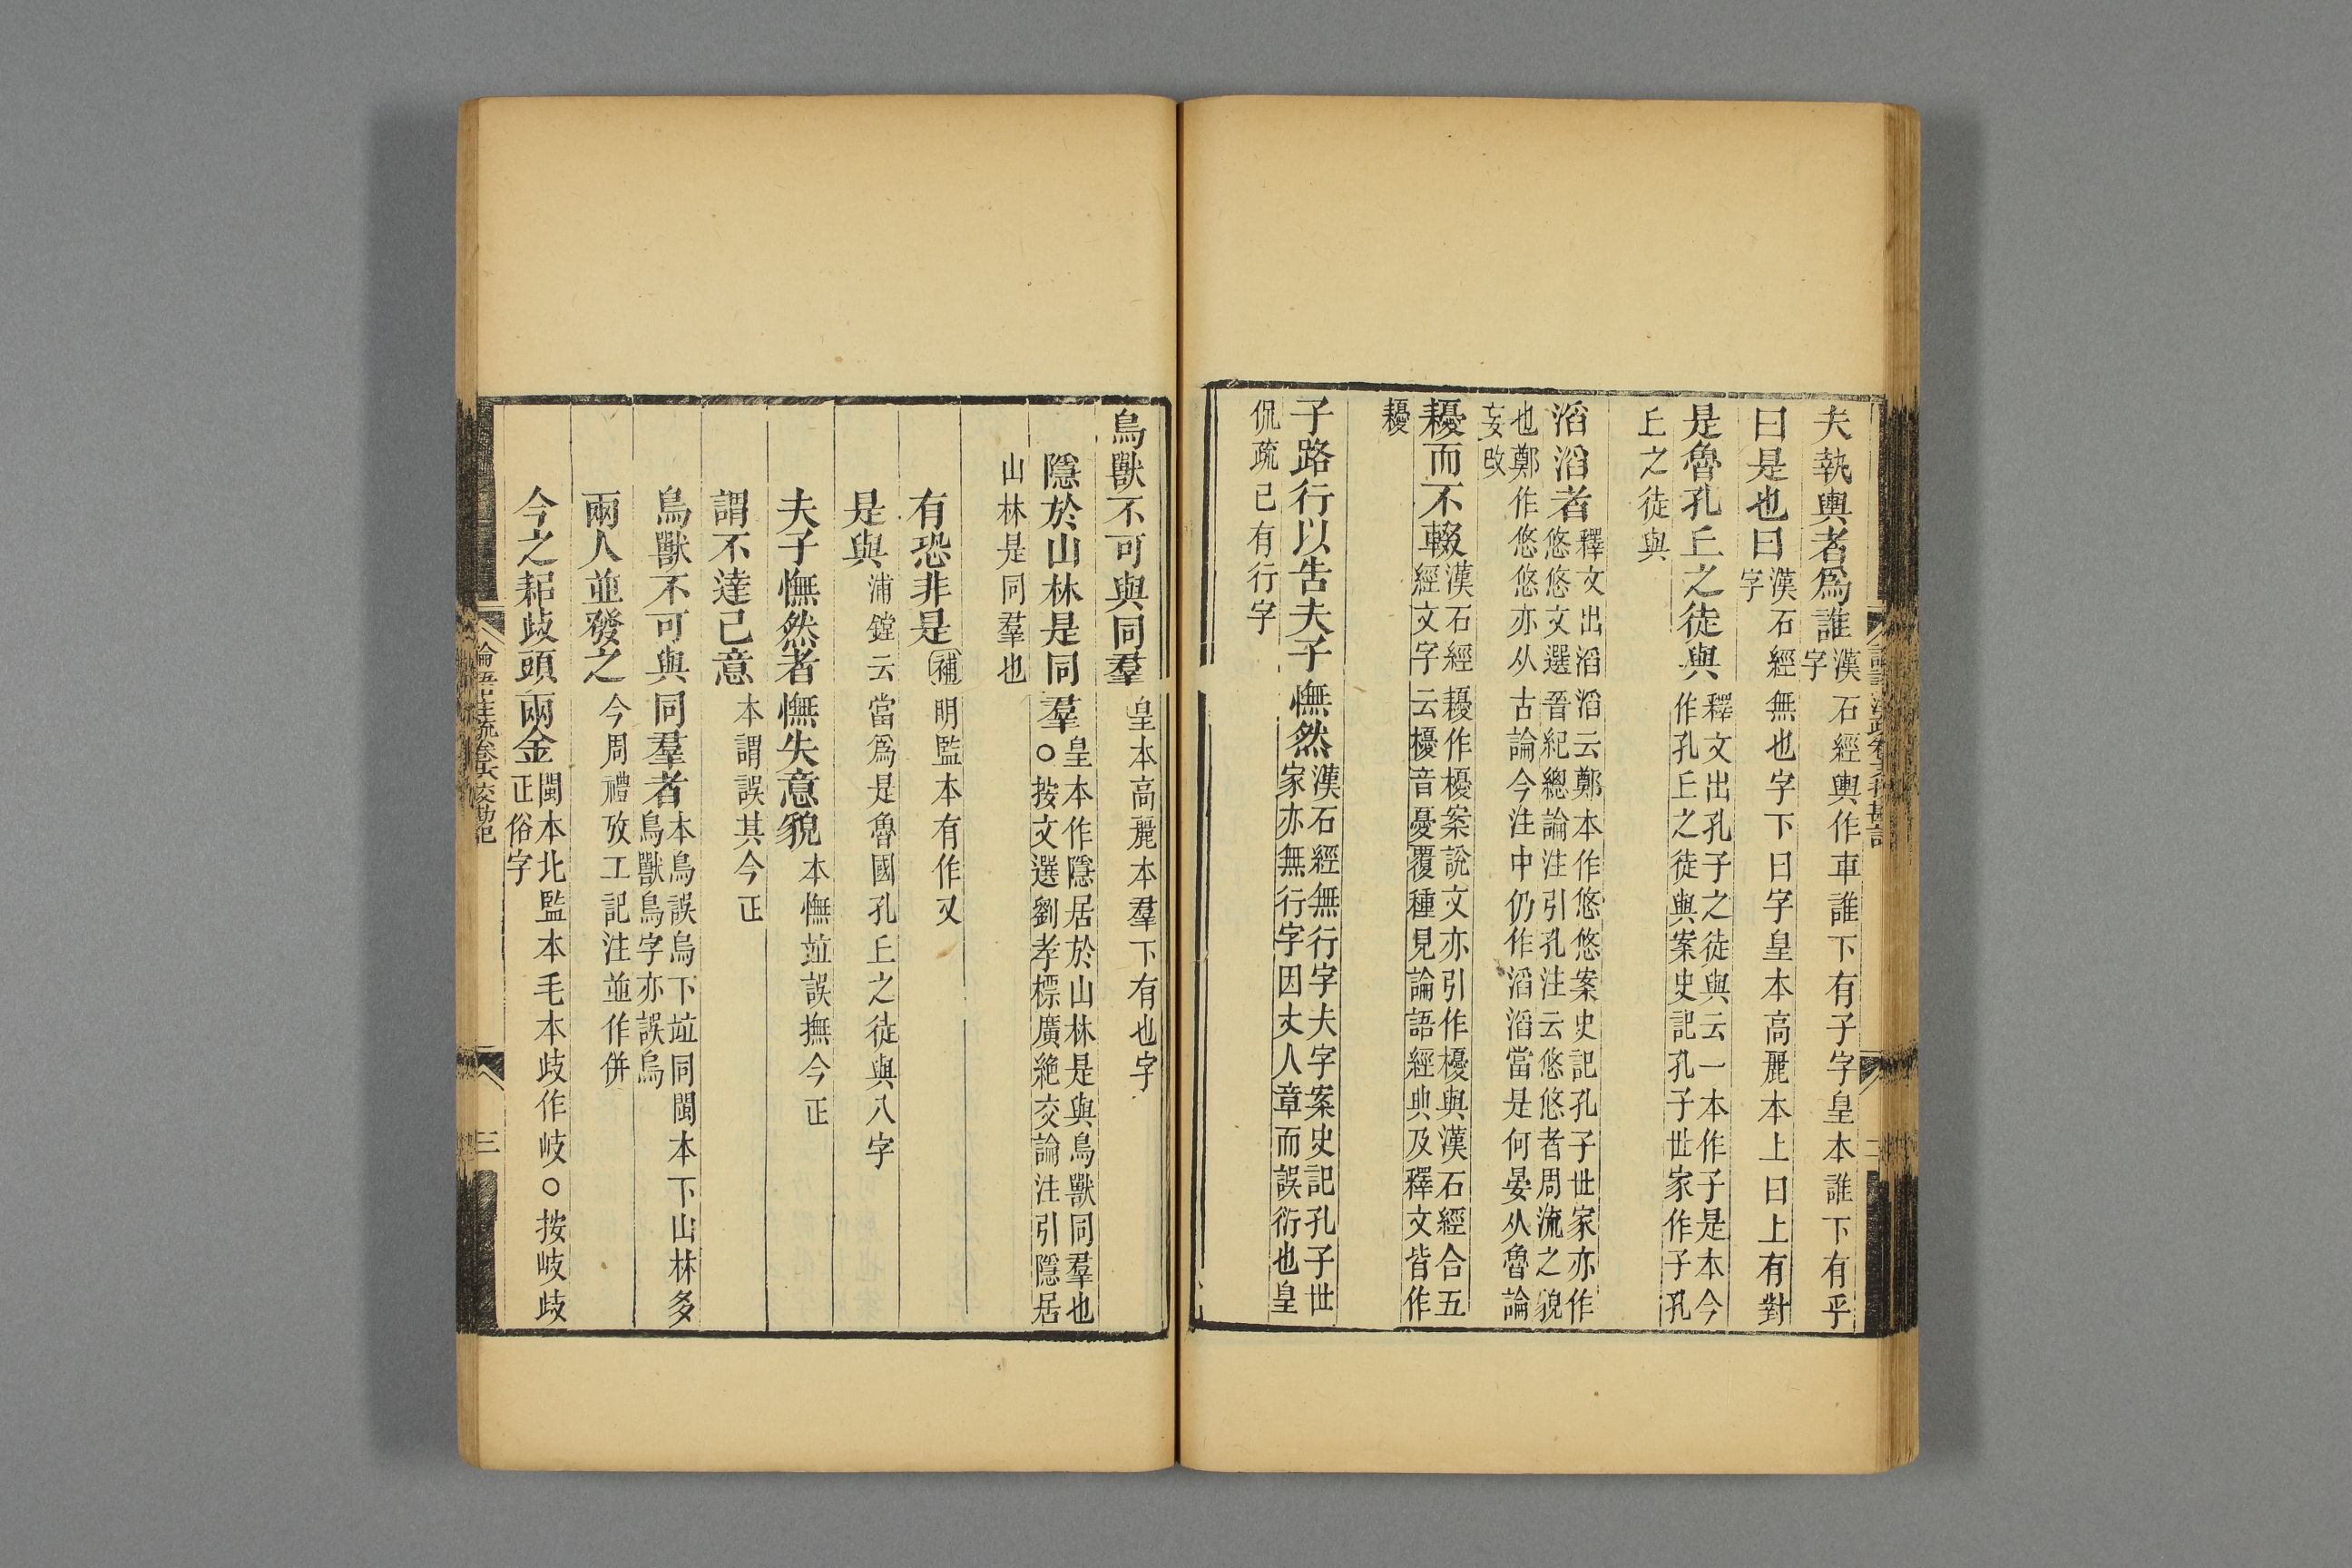 夫執輿者爲誰漢石經輿作車誰下有子字皇本誰下有乎
字
曰是也曰漢石經無也字下曰字皇本高麗本上曰上有對
字
是魯孔丘之徒與釋文出孔子之徒與云一本作子是本今
作孔丘之徒與案史記孔子世家作子孔
丘之徒與
滔滔者釋文出滔滔云鄭本作悠悠案史記孔子世家亦作
悠悠文選晉紀總論注引孔注云悠悠者周流之貌
也鄭作悠悠亦从古論今注中仍作滔滔當是何晏从魯論
妄改
耰而不輟漢石經耰作櫌案說文亦引作櫌與漢石經合五
經文字云櫌音憂覆種見論語經典及釋文皆作
耰
子路行以告夫子憮然漢石經無行字夫字案史記孔子世
家亦無行字因丈人章而誤衍也皇
侃疏已有行字
鳥獸不可與同羣皇本高麗本羣下有也字
隱於山林是同羣皇本作隱居於山林是與鳥獸同羣也
○按文選劉孝標廣絶交論注引隱居
山林是同羣也
有恐非是補明監本有作又
是與浦鏜云當爲是魯國孔丘之徒與八字
夫子憮然者憮失意貌本憮竝誤撫今正
謂不達己意本謂誤其今正
鳥獸不可與同羣者本鳥誤烏下竝同閩本下山林多
鳥獸鳥字亦誤烏
兩人並發之今周禮攷工記注並作併
今之耜歧頭兩金閩本北監本毛本歧作岐○按岐歧
正俗字
論語注疏卷六校勘記
三